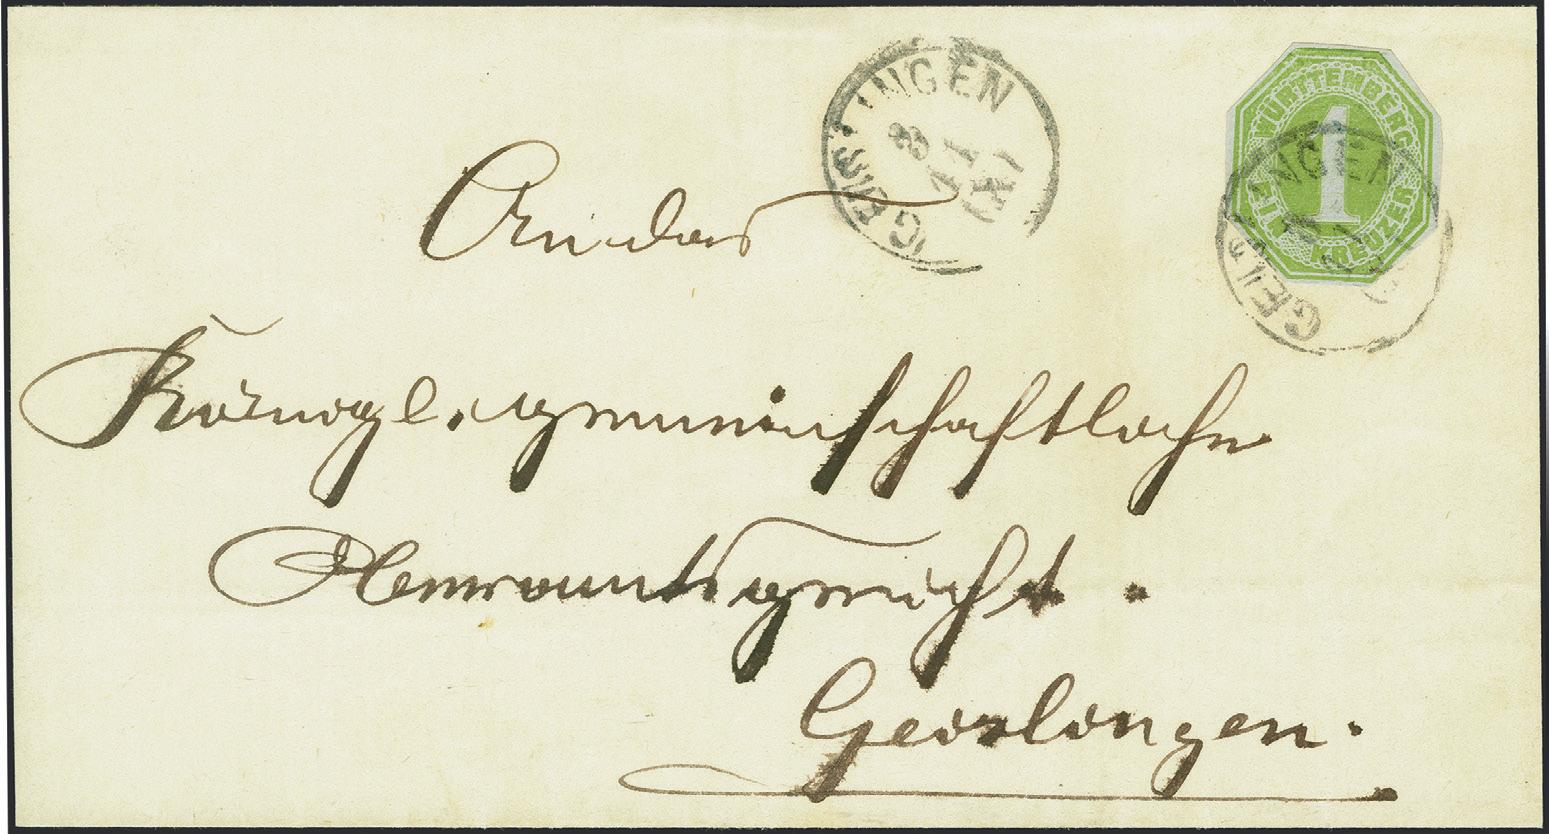 GEISLINGEN
3 11
WÜRTTEMBERG
1
KREUZER
GEISLINGEN
An das
Königl. gemeinschaftliche
Oberamtsgericht.
Geislingen.